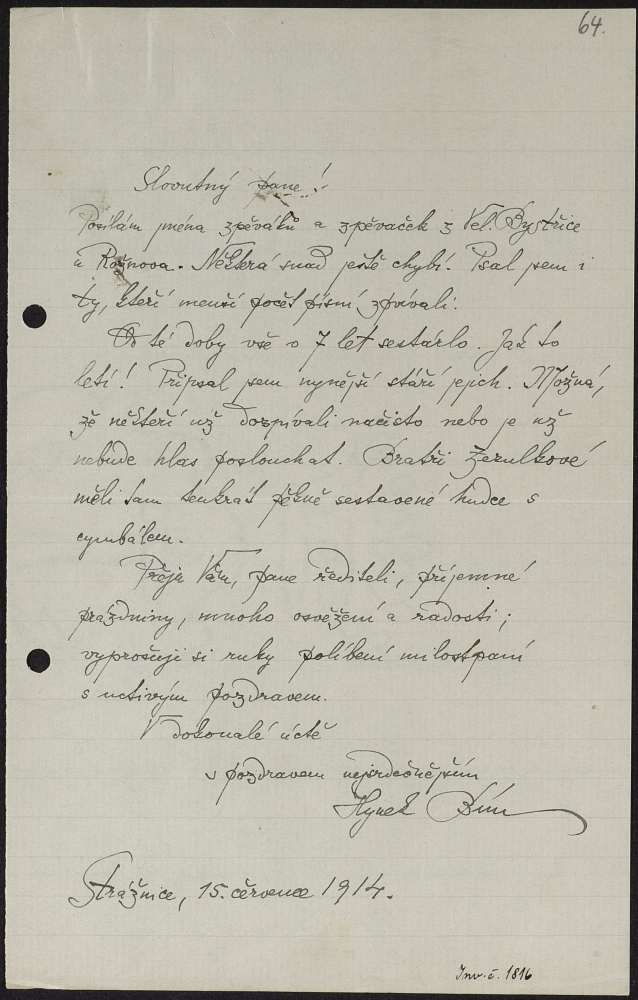 64.
Slovutný pane!
Posílám jména zpěváků a zpěvaček z Vel. Bystřice
a Rožnova. Některá snad ještě chybí. Psal jsem i
ty, kteří menší počet písní zpívali.
Od té doby vše o 7 let sestárlo. Jak to
letí! Připsal jsem nynější stáří jejich. Možná,
že někteří už dozpívali načisto nebo je už
nebude hlas poslouchat. Bratři Zezulkové
měli tam tenkrát pěkně sestavené hudce s
cymbálem.
Přeju Vám, pane řediteli, příjemné
prázdniny, mnoho osvěžení a radosti;
vyprošuji si ruky políbení milostpaní
s uctivým pozdravem.
V dokonalé úctě
s pozdravem nejsrdečnějším
Hynek Bím
Strážnice, 15. července 1914.
Inv. č. 1816